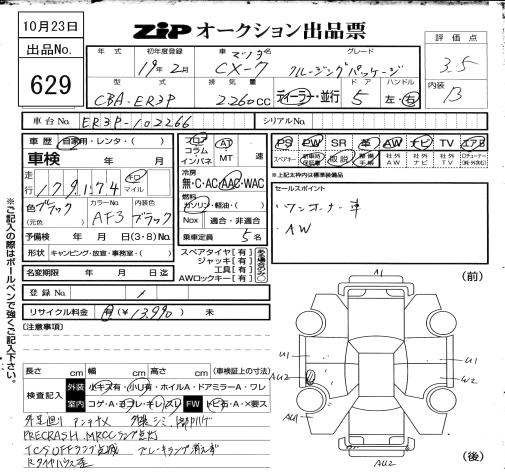 10月23日
出品No.
629
ZIP オークション出品票
評価点
3.5
内装
B
年式
初年度登録
車名
グレード
19年2月
マツダ
CX-7
クルージングパッケージ
型式
排気量
ドア
ハンドル
CBA-ER3P
2.260cc
ディーラー・並行
5
左・右
車台No.
ER3P-102266
シリアルNo.
車歴
自家用・レンタ・( )
車検 年 月
走行
179.174
キロ
マイル
色
ブラック
(元色)
カラーNo.
AF3
内装色
ブラック
予備検 年 月 日(3・8)No.
形状 キャンピング・放宣・事務室・( )
名変期限 年 月 日迄
登録No.
リサイクル料金 有(¥13.990) 未
(注意事項)
フロア
コラム
インパネ
AT
MT
速
冷房
無・C・AC・AAC・WAC
燃料
ガソリン・軽油・( )
Nox 適合・非適合
乗車定員 5名
スペアタイヤ[有]
ジャッキ[有]
工具[有]
AWロックキー[有]
PS PW SR 革 AW ナビ TV エアB
スペアキー
取説
整備手帳
社外AW
社外ナビ
社外TV
※上記太枠内は標準装備品
セールスポイント
・ワンオーナー車
・AW
(前)
A1
U1
AU2
AU1
U1
W2
AU2
(後)
長さ cm 幅 cm 高さ cm (車検証上の寸法)
検査記入
外装
小キズ有・小U有・ホイルA・ドアミラーA・ワレ
室内
コゲ・A・ヨゴレ・キレ・スレ
FW
トビ石・A・×要ス
PRECRASH MRCCランプ点灯
TCS OFFランプ点滅
ブレーキランプ消えず
※ご記入の際はボールペンで強くご記入下さい。